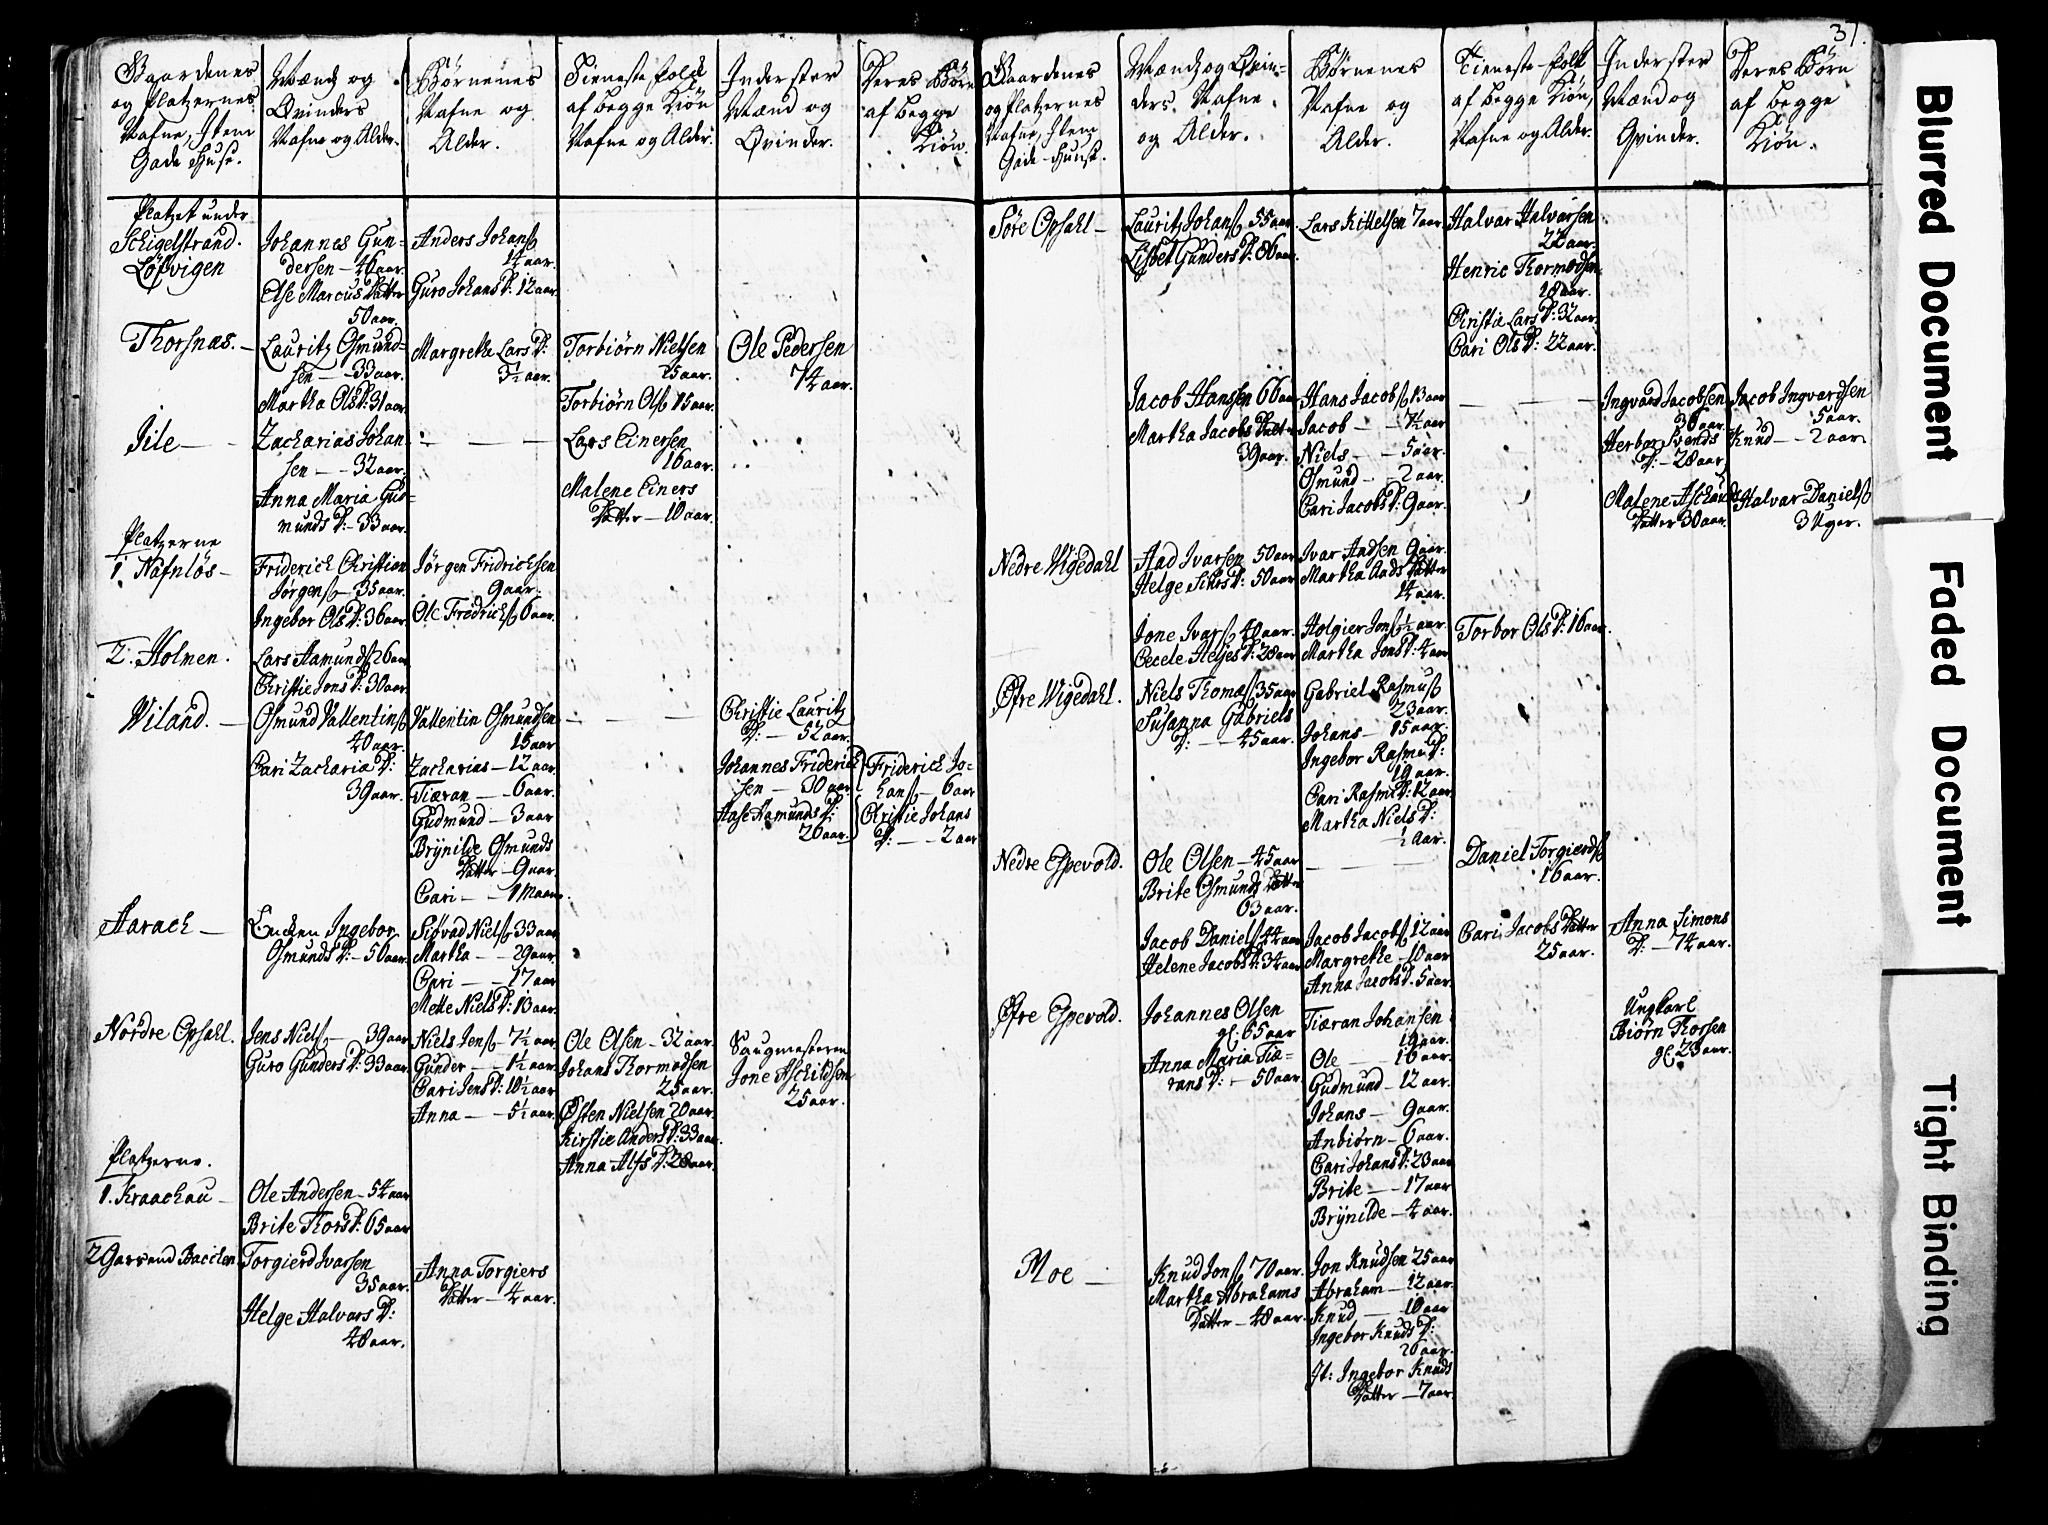 Gaardenes
og Platzernes
Nafne, Item
Gade Huse.
Mænds og
Qvinders
Nafne og Alder.
Børnenes
Nafne og
Alder.
Tieneste folck
af begge Kiøn
Nafne og Alder.
Inderster
Mænd og
Qvinder.
Deres Børn
af begge
Kiøn.
Platzet under
Schigelstrand.
Løfvigen
Johannes Gun-
dersen - 46 aar.
Else Marcus Datter
50 aar.
Anders Johans
14 aar.
Guro Johans D: 12 aar.
Thorsnæs. -
Lauritz Osmund-
sen - 33 aar.
Martha Ols D: 31 aar
Margretha Lars D:
3½ aar.
Torbiørn Nielsen
25 aar.
Torbiørn Ols 15 aar.
Ole Pedersen
74 aar.
Jile -
Zacharias Johan-
sen - 32 aar.
Anna Maria Gud-
munds D: - 33 aar.
Lars Einersen
16 aar.
Malene Einers
Datter - 10 aar.
Platzerne
1. Nafnløs -
Friderich Christian
Jørgens - 35 aar.
Ingebor Ols D: 36 aar
Jørgen Fridrichsen
9 aar.
Ole Fredrichs 6 aar.
2. Holmen.
Lars Aamunds 26 aar
Christie Jons D: 30 aar.
Viland. -
Osmund Vallentins
40 aar.
Cari Zacharia D:
39 aar.
Vallentin Osmundsen
15 aar
Zacharias - 12 aar.
Tiæran - 6 aar.
Gudmund - 3 aar
Brÿnilde Osmunds
Datter - 9 aar.
Cari - 1 Maan.
Christie Lauritz
D: - 52 aar.
Johannes Friderich
sen - 30 aar
Aase Aamunds D:
20 aar.
Friderich Jo-
hans - 6 aar
Christie Johans
D: - 2 aar
Aarach -
Encken Ingebor
Osmunds D: - 50 aar.
Sifvad Niels 33 aar
Martha - 29 aar.
Cari - 17 aar
Mette Niels D: 13 aar.
Nordre Opsahl.
Jens Niels - 39 aar
Guro Gunders D: 33 aar.
Niels Jens - 7½ aar.
Gunder - 1½ aar.
Cari Jens D: 10½ aar
Anna - 5½ aar.
Ole Olsen - 32 aar.
Johans Thormodsen
25 aar.
Østen Nielsen 20 aar.
Kirstie Anders D: 33 aar.
Anna Alfs D: 28 aar.
Saugmesteren
Jone Aschildsen
25 aar.
Platzerne.
1. Kraachau -
Ole Andersen - 54 aar
Brite Thors D: 65 aar
2 Garrand Bacchen
Torgierd Ivarsen
35 aar.
Helge Halvars D:
48 aar.
Anna Torgiers
Datter - 4 aar.
37.
Gaardenes
og Platzernes
Nafne, Item
Gade-Huuse.
Mænds og Qvin-
ders. Nafne
og Alder.
Børnenes
Nafne og
Alder.
Tieneste-folk
af begge Kiøn,
Nafne og Alder.
Inderster
Mænd og
Qvinder.
Deres Børn
af begge
Kiøn.
Søre Opsahl -
Lauritz Johans 55 aar.
Lisbet Gunders D: 86 aar.
Lars Kittelsen 7 aar
Halvar Halvorsen
22 aar.
Henric Thormodsen
18 aar.
Christie Lars D: 32 aar.
Cari Ols D: 22 aar.
Jacob Hansen 66 aar
Martha Jacobs Datter
39 aar.
Hans Jacobs 13 aar
Jacob - 7½ aar
Niels - 5 aar.
Osmund - 2 aar.
Cari Jacobs D: 9 aar.
Ingvard Jacobsen
36 aar.
Herbor Svends
D: - 28 aar.
Malene Aschilds
Datter 30 aar.
Jacob Ingvardsen
5 aar.
Knud - 2 aar
Halvar Daniels
3 Uger.
Nedre Vigedahl
Aad Ivarsen 50 aar
Helge Siurs D: 50 aar
Ivar Aadsen 9 aar.
Martha Aads Datter
14 aar.
Jone Ivars 40 aar.
Cecele Heljes D: 28 aar
Holgier Jons ½ aar.
Martha Jons D: 4 aar
Torbor Ols D: 16 aar.
Øfre Vigedahl.
Niels Thomæs 35 aar
Susanna Gabriels
D: - 45 aar.
Gabriel Rasmus
23 aar.
Johans - 15 aar.
Ingebor Rasmu D:
19 aar.
Cari Rasm: D: 12 aar
Martha Niels D:
½ Aar.
Nedre Espevold.
Ole Olsen - 45 aar
Brite Osmunds Datter
63 aar.
Daniel Torgierds
16 aar.
Jacob Daniels 44 aar
Helene Jacobs D: 34 aar
Jacob Jacobs 12 aar
Margrethe - 10 aar
Anna Jacobs D. 5 aar.
Cari Jacobs Datter
25 aar.
Anna Simons
D: - 74 aar.
Øfre Espevold.
Johannes Olsen
gl. 65 aar
Anna Maria Tiæ-
rans D: - 50 aar.
Tiæran Johansen
19 aar.
Ole - 16 aar.
Gudmund - 12 aar.
Johans - 9 aar.
Anbiørn - 6 aar.
Cari Johans D: 23 aar
Brite - 17 aar
Brÿnilde - 4 aar.
Ungkarl
Biørn Thorsen
gl. 23 aar.
Moe -
Knud Jons 70 aar.
Martha Abrahams
Datter - 48 aar.
Jon Knudsen 25 aar
Abraham - 12 aar.
Knud - 10 aar
Ingebor Knuds D:
20 aar.
It: Ingebor Knuds
Datter - 7 aar.
Blurred Document
Faded Document
Tight Binding